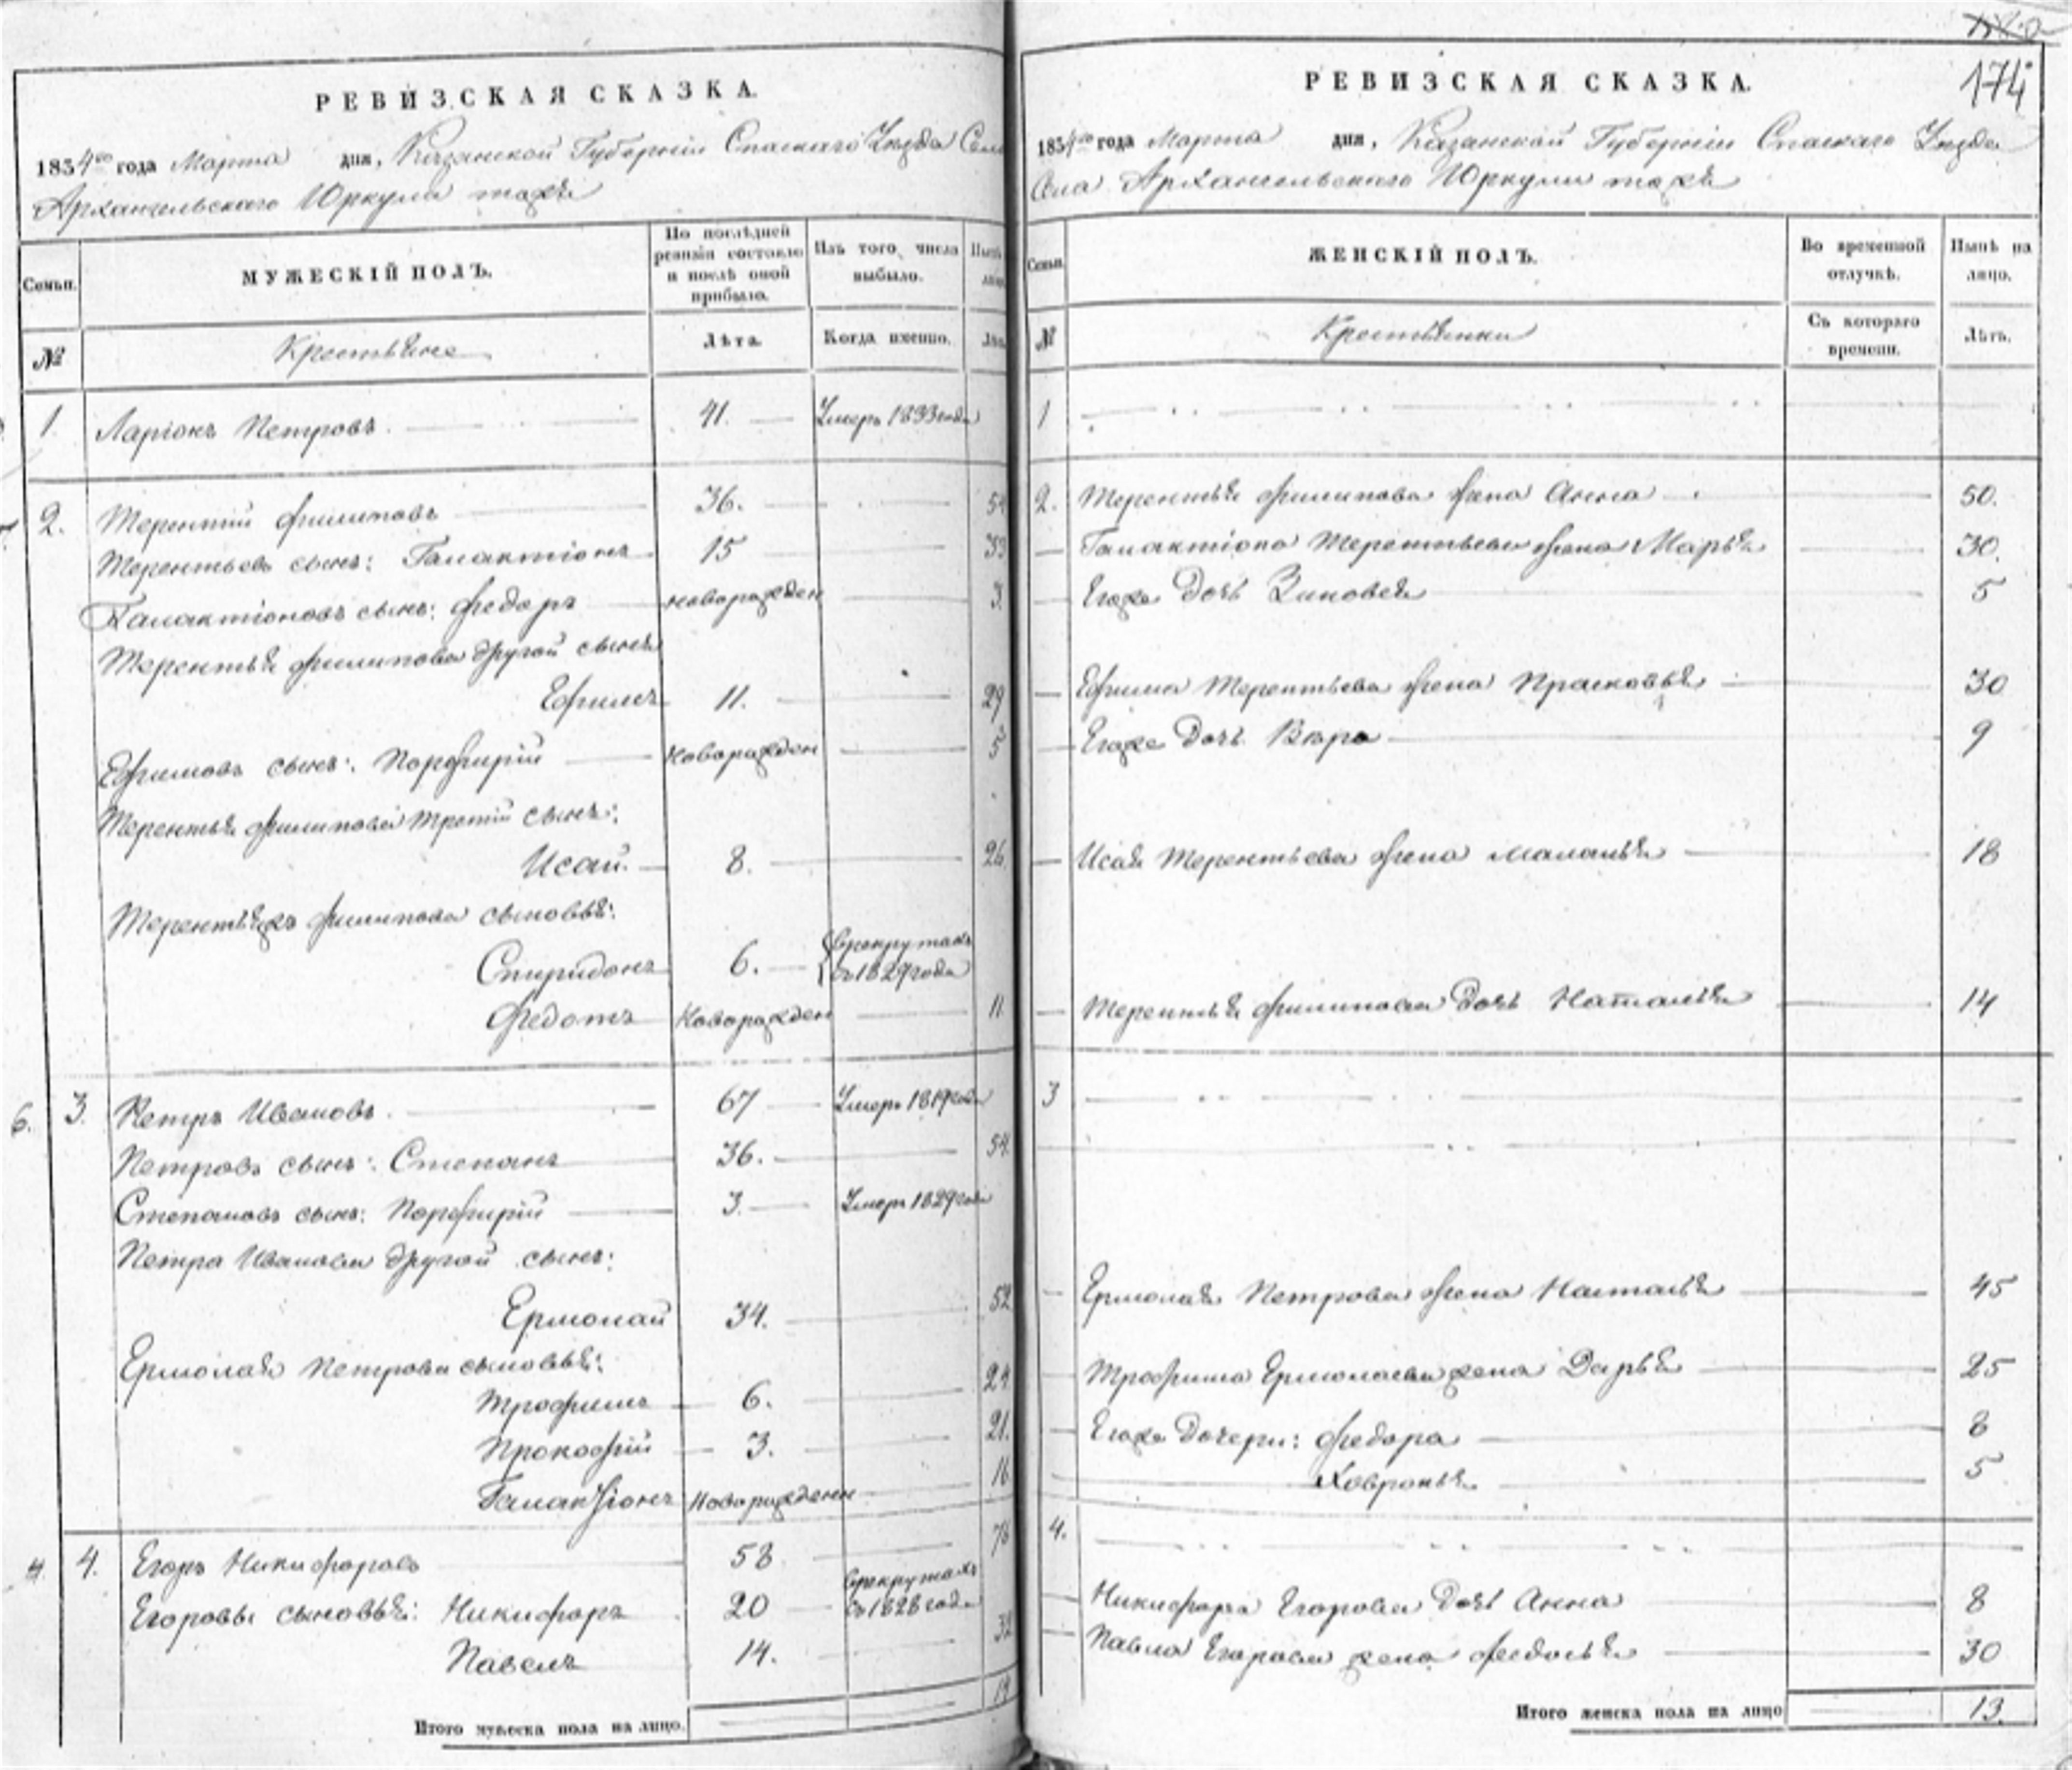 174
РЕВИЗСКАЯ СКАЗКА.
1834го года Марта дня, Казанской Губернiи Спаскаго Уѣзда Села
Архангельскаго Юркули тожъ
Семьи. МУЖЕСКІЙ ПОЛЪ. По послѣдней ревизіи состояло и послѣ оной прибыло. Изъ того числа выбыло. Нынѣ на лицо
№ Крестьяне Лѣта. Когда именно. Лѣта
1. Ларiонъ Петровъ. 41. Умеръ 1833 года
2. Терентiй Филиповъ 36. 54
Терентьевъ сынъ: Галактiонъ 15 33
Галактiоновъ сынъ: Федоръ новорожден 3.
Терентья Филипова другой сынъ
Ефимъ 11. 29
Ефимовъ сынъ: Порфирiй новорожден 5
Терентья Филипова третiй сынъ:
Исай. 8. 26.
Филипова сыновья:
Спиридонъ 6. Врекрутахъ съ 1827 года
Федотъ Новорожден 11
6. 3. Петръ Ивановъ. 67 Умеръ 1819 года
Петровъ сынъ: Степанъ 36. 54.
Степановъ сынъ: Порфирiй 3. Умеръ 1829 года
Петра Иванова другой сынъ:
Ермолай 34. 52
Ермолая Петрова сыновья:
Трофимъ 6. 24
Прокофiй 3. 21.
Галактiонъ Новорожденн 16
4. 4. Егоръ Никифоровъ 58 76
Егоровы сыновья: Никифоръ 20 Врекрутахъ съ 1828 года
Павелъ 14. 32
Итого мужеска пола на лицо. 19
РЕВИЗСКАЯ СКАЗКА.
1834го года Марта дня, Казанской Губернiи Спаскаго Уѣзда
Села Архангельскаго Юркули тожъ
Семьи. ЖЕНСКІЙ ПОЛЪ. Во временной отлучкѣ. Нынѣ на лицо.
№ Крестьянки Съ котораго времени. Лѣтъ.
1
2. Терентья Филипова жена Анна 50.
Галактiона Терентьева жена Марья 30.
Егоже Дочь Зиновея 5
Ефима Терентьева жена Прасковья 30
Егоже Дочь Вѣра 9
Исая Терентьева жена Маланья 18
Терентья Филипова Дочь Наталья 14
3
Ермолая Петрова жена Наталья 45
Трофима Ермолаева жена Дарья 25
Егоже Дочери: Федора 8
Хавронья 5
4.
Никифора Егорова Дочь Анна 8
Павла Егорова жена Федосья 30
Итого женска пола на лицо 13.